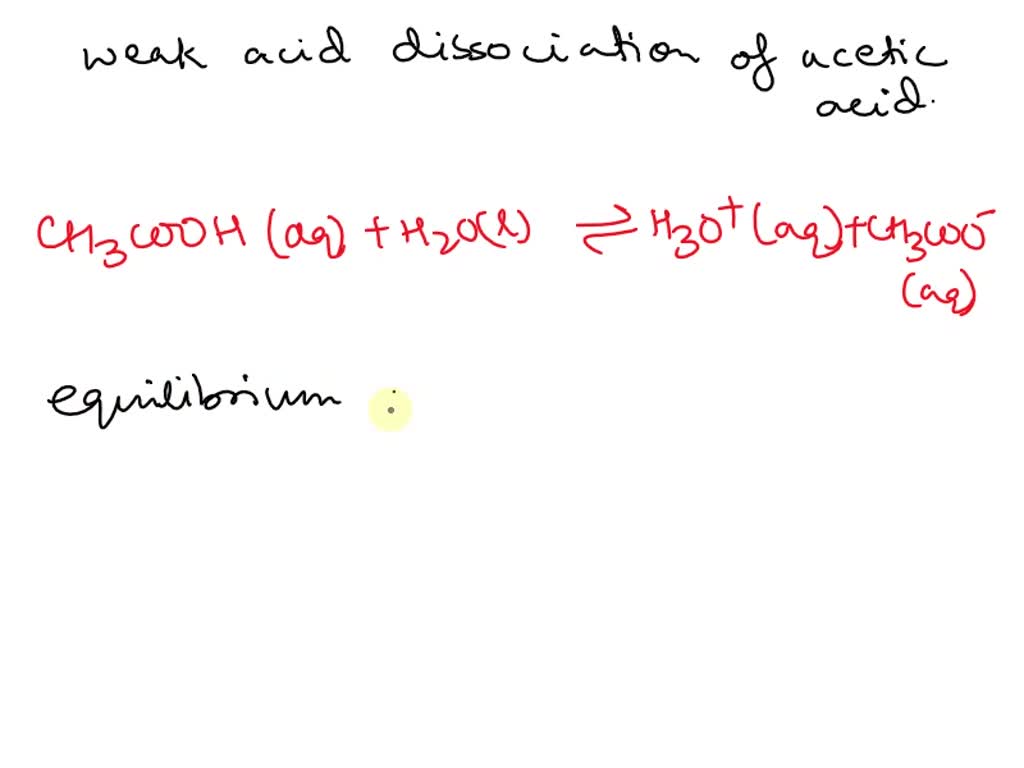 weak acid dissociation of acetic
acid.
CH3COOH (aq) + H2O(l) ⇌ H3O+ (aq) + CH3COO-
(aq)
equilibrium